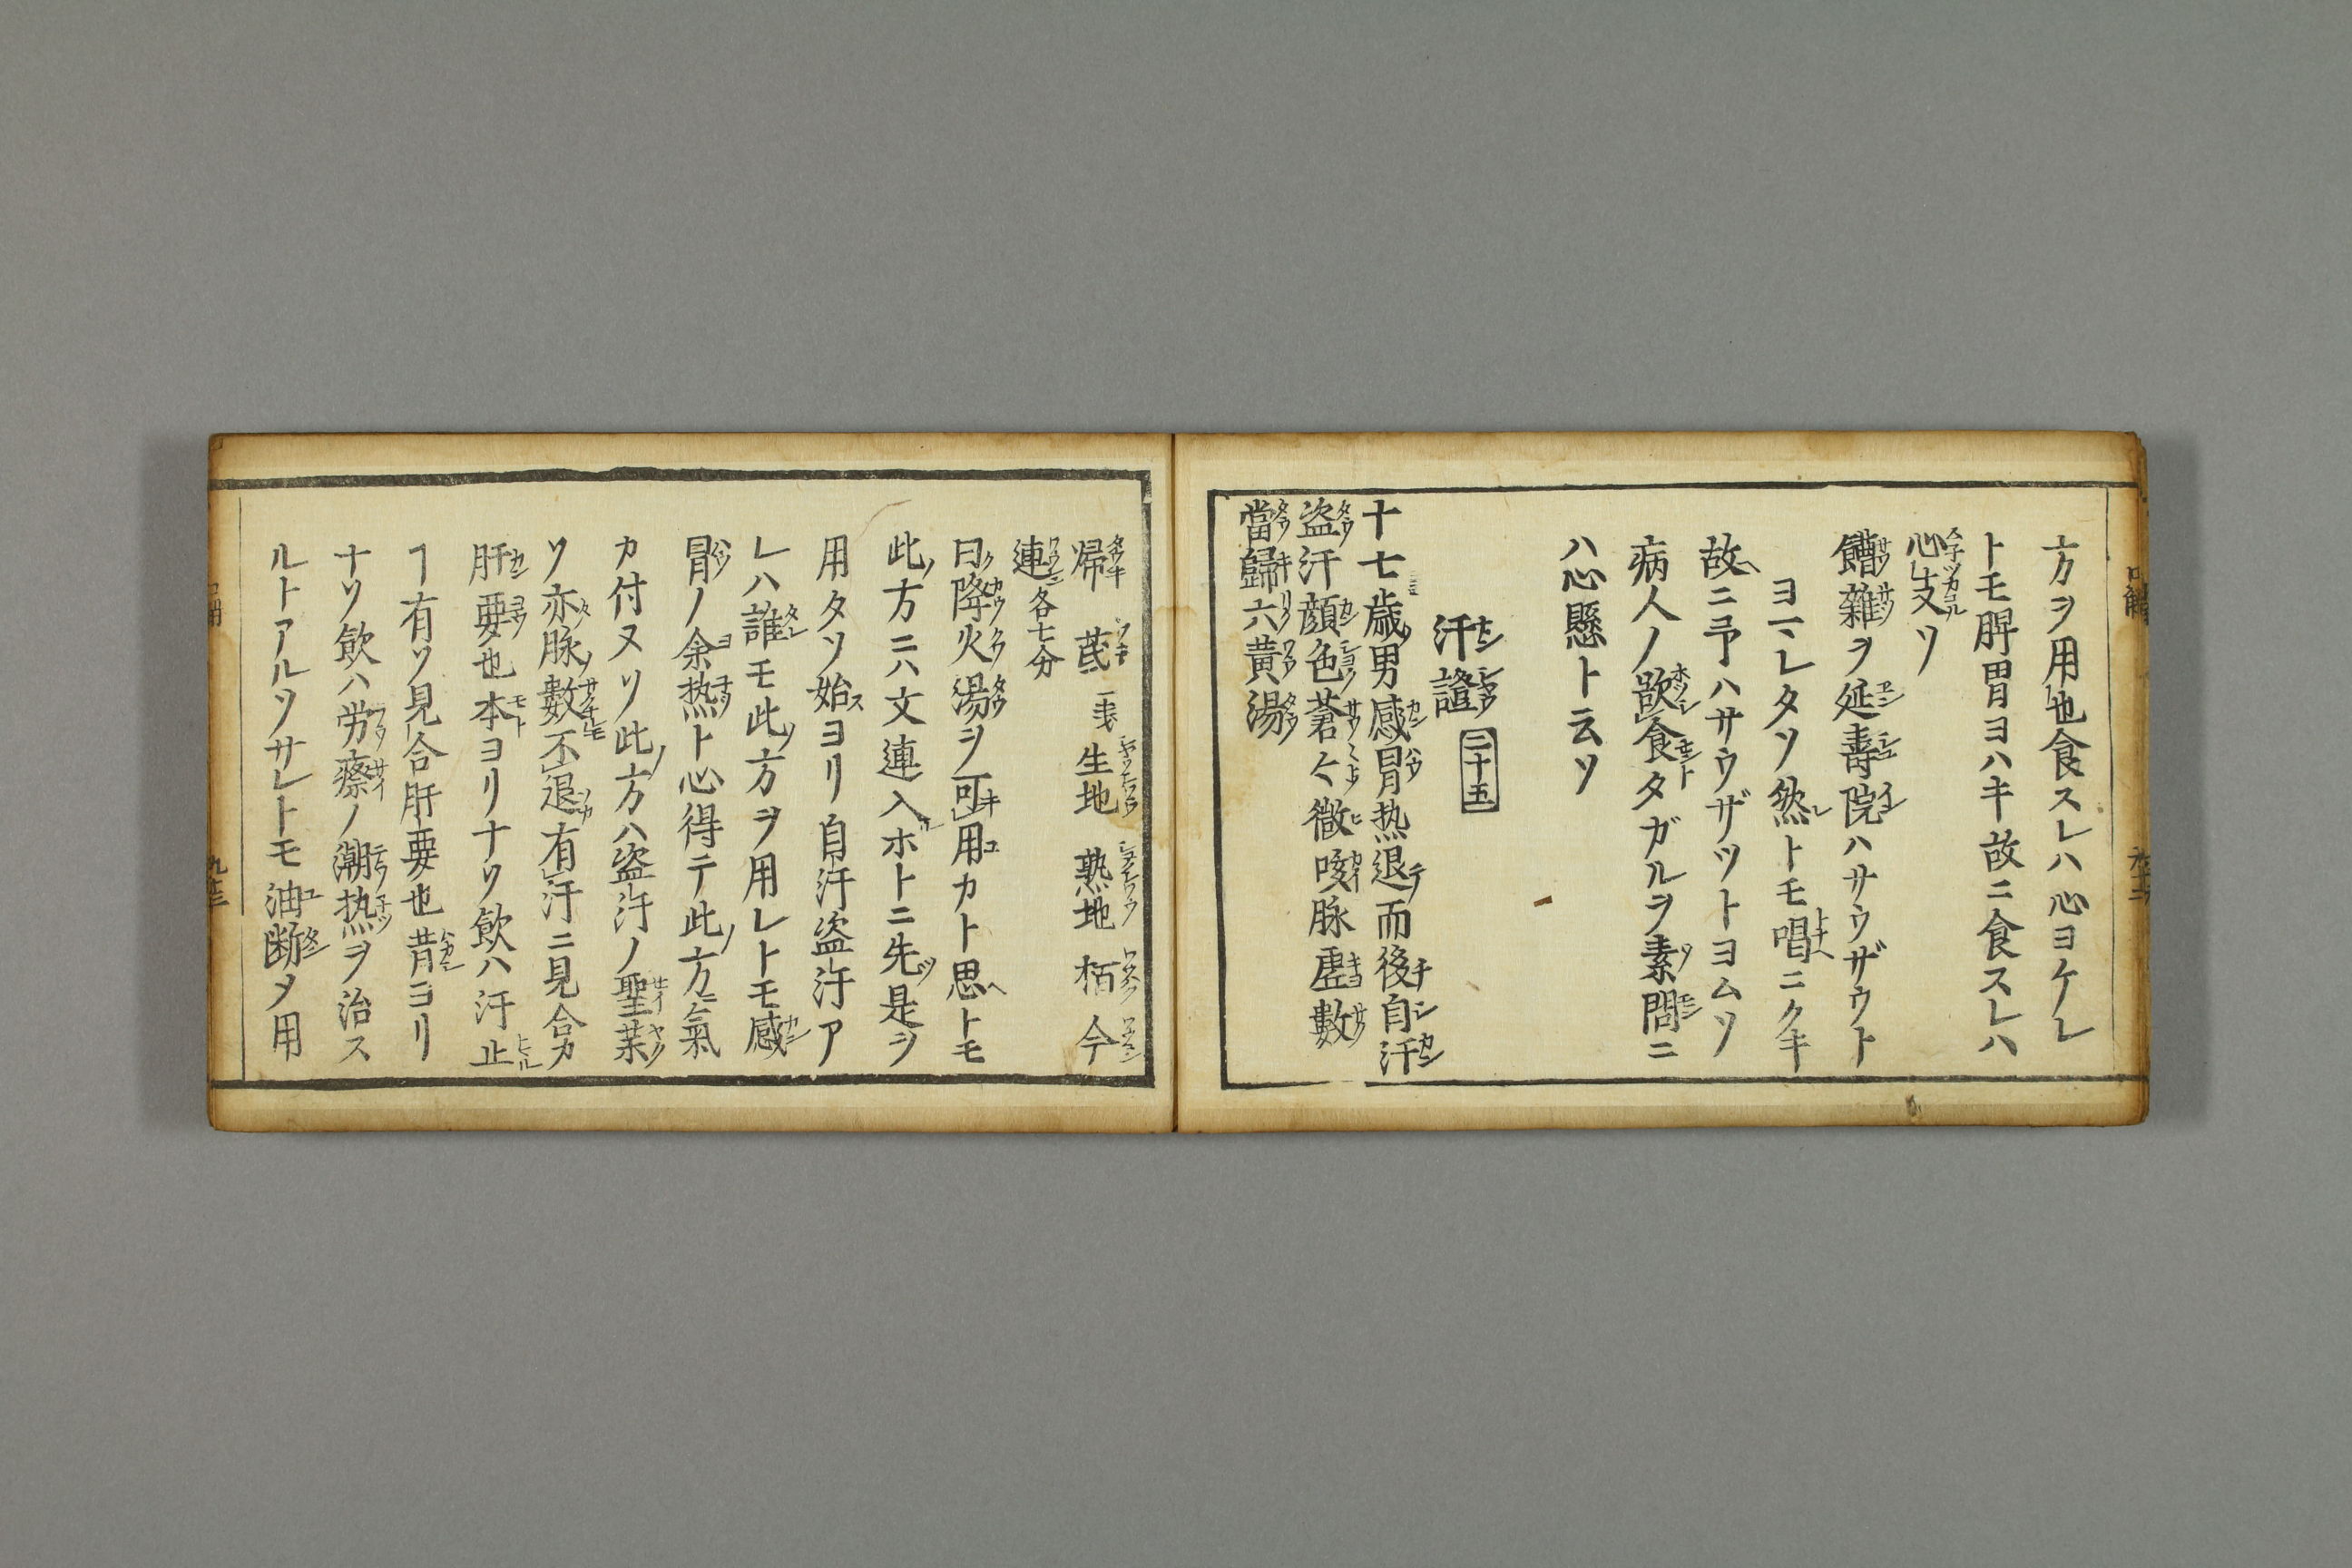 方ヲ用也食スレハ心ヨケレ
トモ脾胃ヨハキ故ニ食スレハ
心支ソ
饐雜ヲ延壽院ハサウザウト
ヨマレタソ然トモ唱ニクキ
故ニ予ハサウザツトヨムソ
病人ノ歆食タガルヲ素問ニ
ハ心懸ト云ソ
汗證 二十五
十七歳男感冒热退而後自汗
盗汗顔色蒼々微咳脉虚數
當歸六黄湯
帰 茋 三表 生地 熟地 栢 今
連各七分
曰降火湯ヲ可用カト思ヘトモ
此方ニハ文連入ホトニ先是ヲ
用タソ始ヨリ自汗盗汗ア
レハ誰モ此方ヲ用レトモ感
冒ノ余热ト心得テ此方ニ氣
カ付ヌソ此方ハ盗汗ノ聖薬
ソ亦脉數不退有汗ニ見合カ
肝要也本ヨリナソ飲ハ汗止
ヿ有ソ見合肝要也昔ヨリ
ナソ飲ハ労瘵ノ潮热ヲ治ス
ルトアルソサレトモ油断メ用